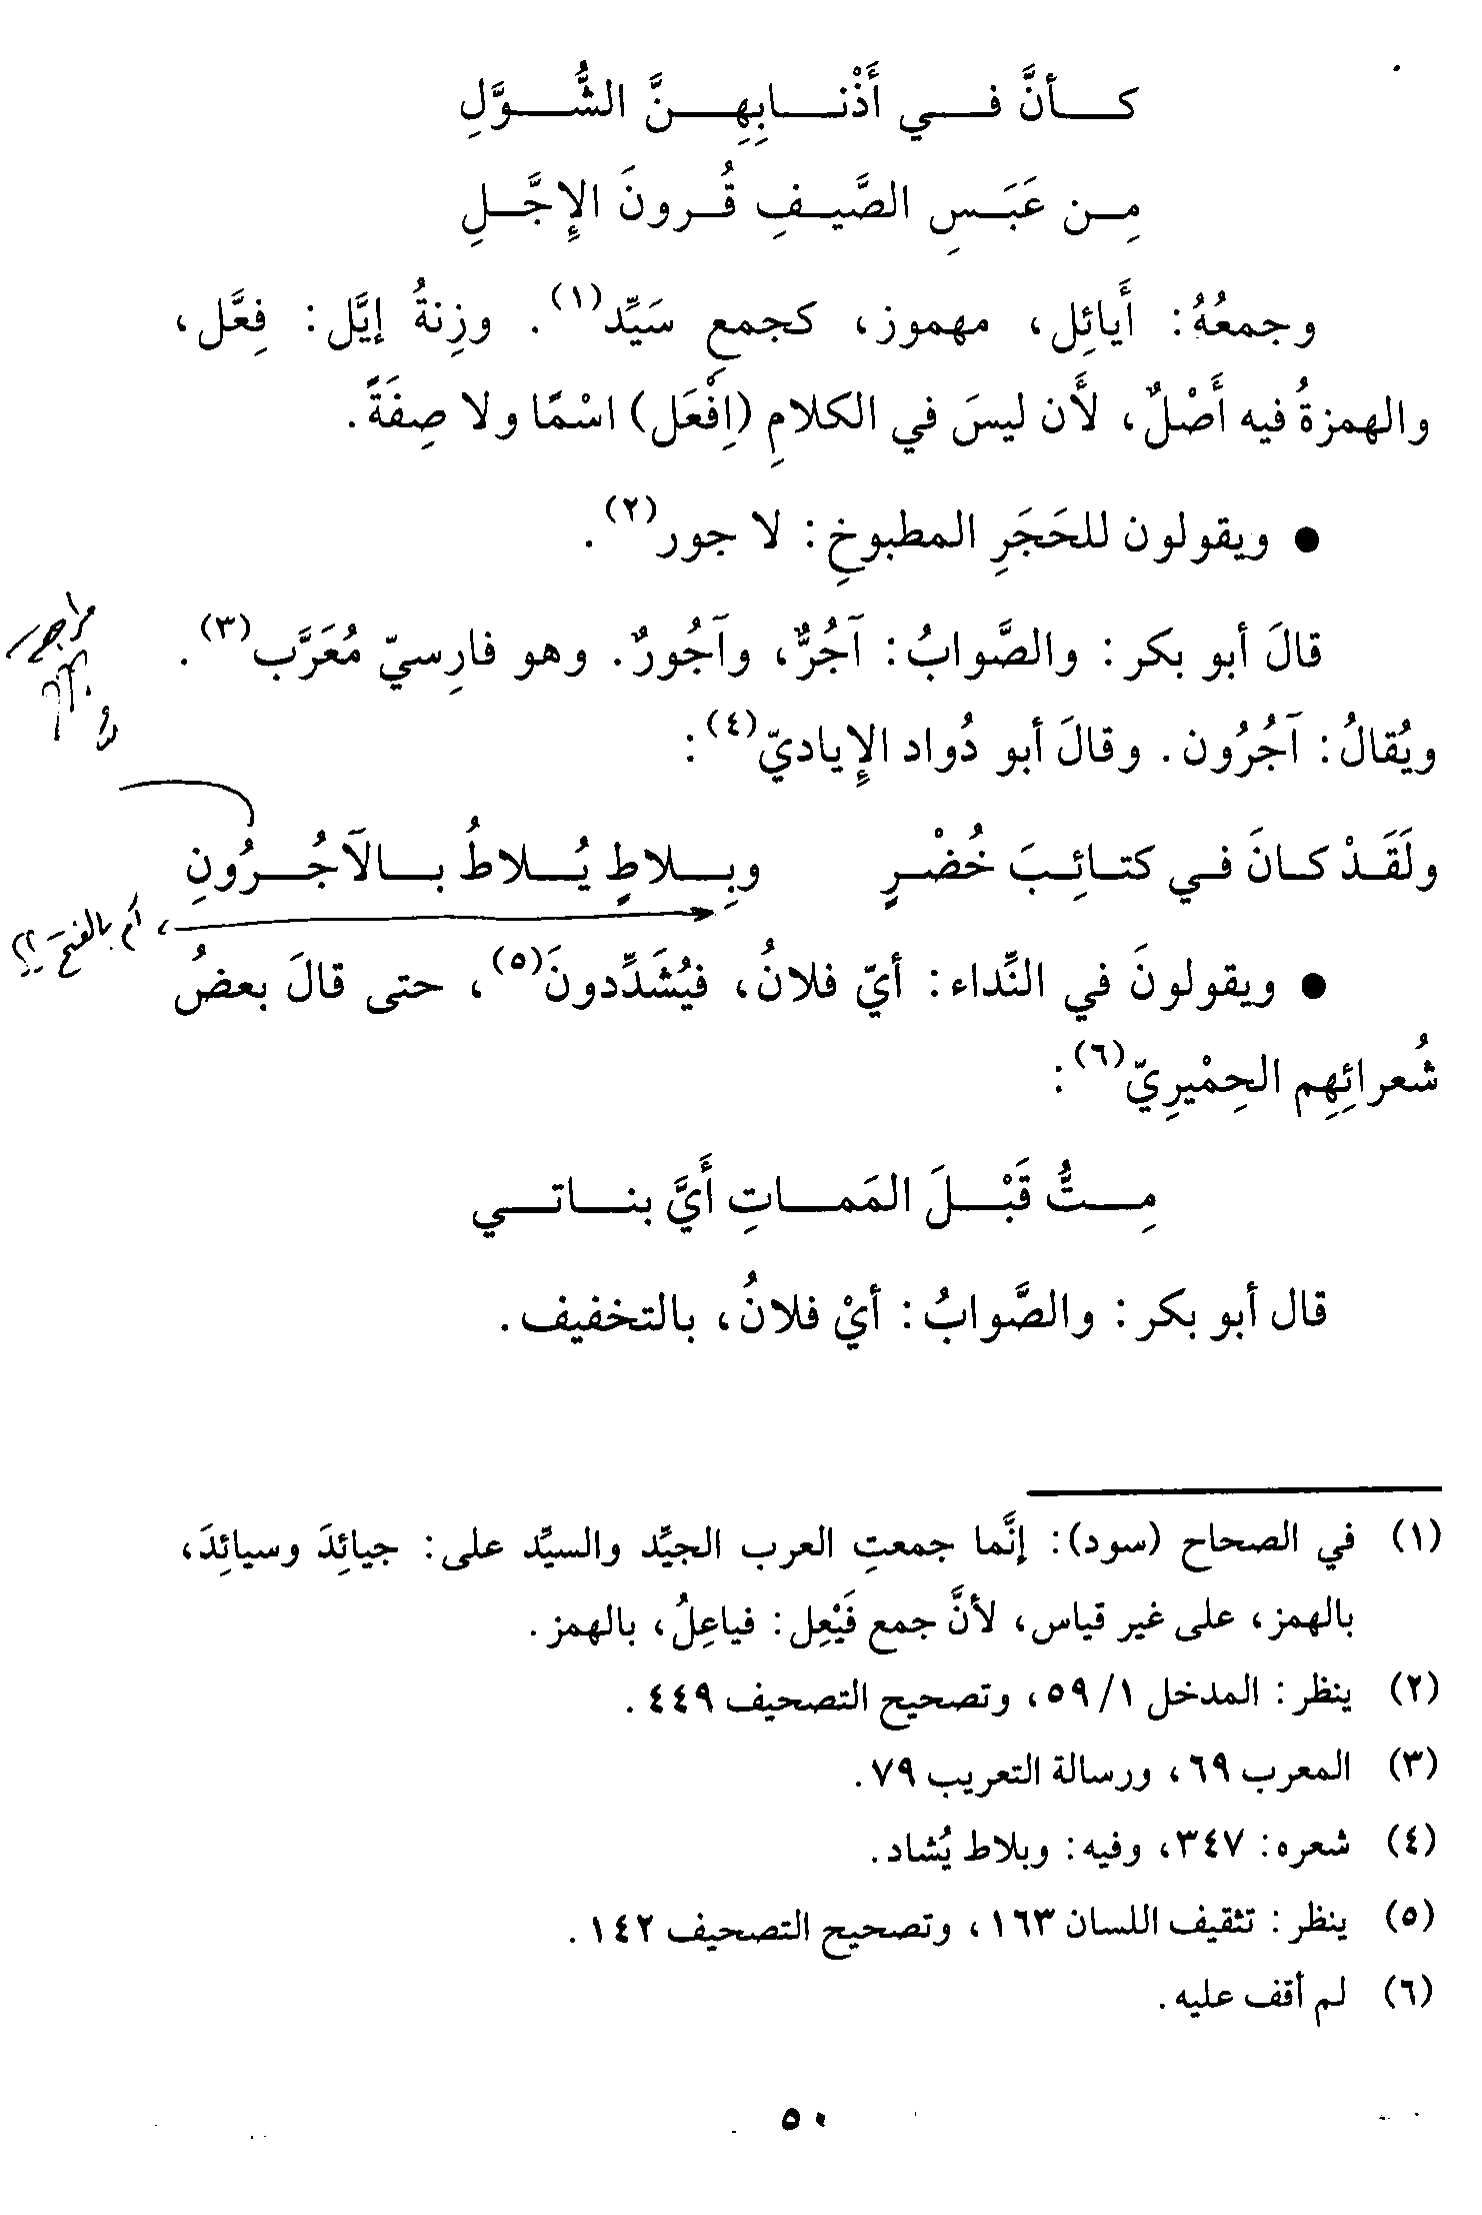 كأنَّ في أَذْنابِهِنَّ الشُّوَّلِ
مِن عَبَسِ الصَّيفِ قُرونَ الإِجَّلِ
وجمعُهُ: أَيائِل، مهموز، كجمعِ سَيِّد(١). وزِنةُ إيَّل: فِعَّل،
والهمزةُ فيه أَصْلٌ، لأَن ليسَ في الكلامِ (اِفْعَل) اسْمًا ولا صِفَةً.
● ويقولون للحَجَرِ المطبوخِ: لا جور(٢).
قالَ أبو بكر: والصَّوابُ: آجُرٌّ، وآجُورٌ. وهو فارِسيّ مُعَرَّب(٣).
ويُقالُ: آجُرُون. وقالَ أبو دُواد الإِياديّ(٤):
ولَقَدْ كانَ في كتائِبَ خُضْرٍ وبِلاطٍ يُلاطُ بالآجُرُونِ
، أم بالفتح ؟!
● ويقولونَ في النِّداء: أيّ فلانُ، فيُشَدِّدونَ(٥)، حتى قالَ بعضُ
شُعرائِهِم الحِمْيرِيّ(٦):
مِتُّ قَبْلَ المَماتِ أَيَّ بناتي
قال أبو بكر: والصَّوابُ: أيْ فلانُ، بالتخفيف.
(١) في الصحاح (سود): إنَّما جمعتِ العرب الجيِّد والسيِّد على: جيائِدَ وسيائِدَ،
بالهمز، على غير قياس، لأنَّ جمع فَيْعِل: فياعِلُ، بالهمز.
(٢) ينظر: المدخل ١/ ٥٩، وتصحيح التصحيف ٤٤٩.
(٣) المعرب ٦٩، ورسالة التعريب ٧٩.
(٤) شعره: ٣٤٧، وفيه: وبلاط يُشاد.
(٥) ينظر: تثقيف اللسان ١٦٣، وتصحيح التصحيف ١٤٢.
(٦) لم أقف عليه.
٥٠